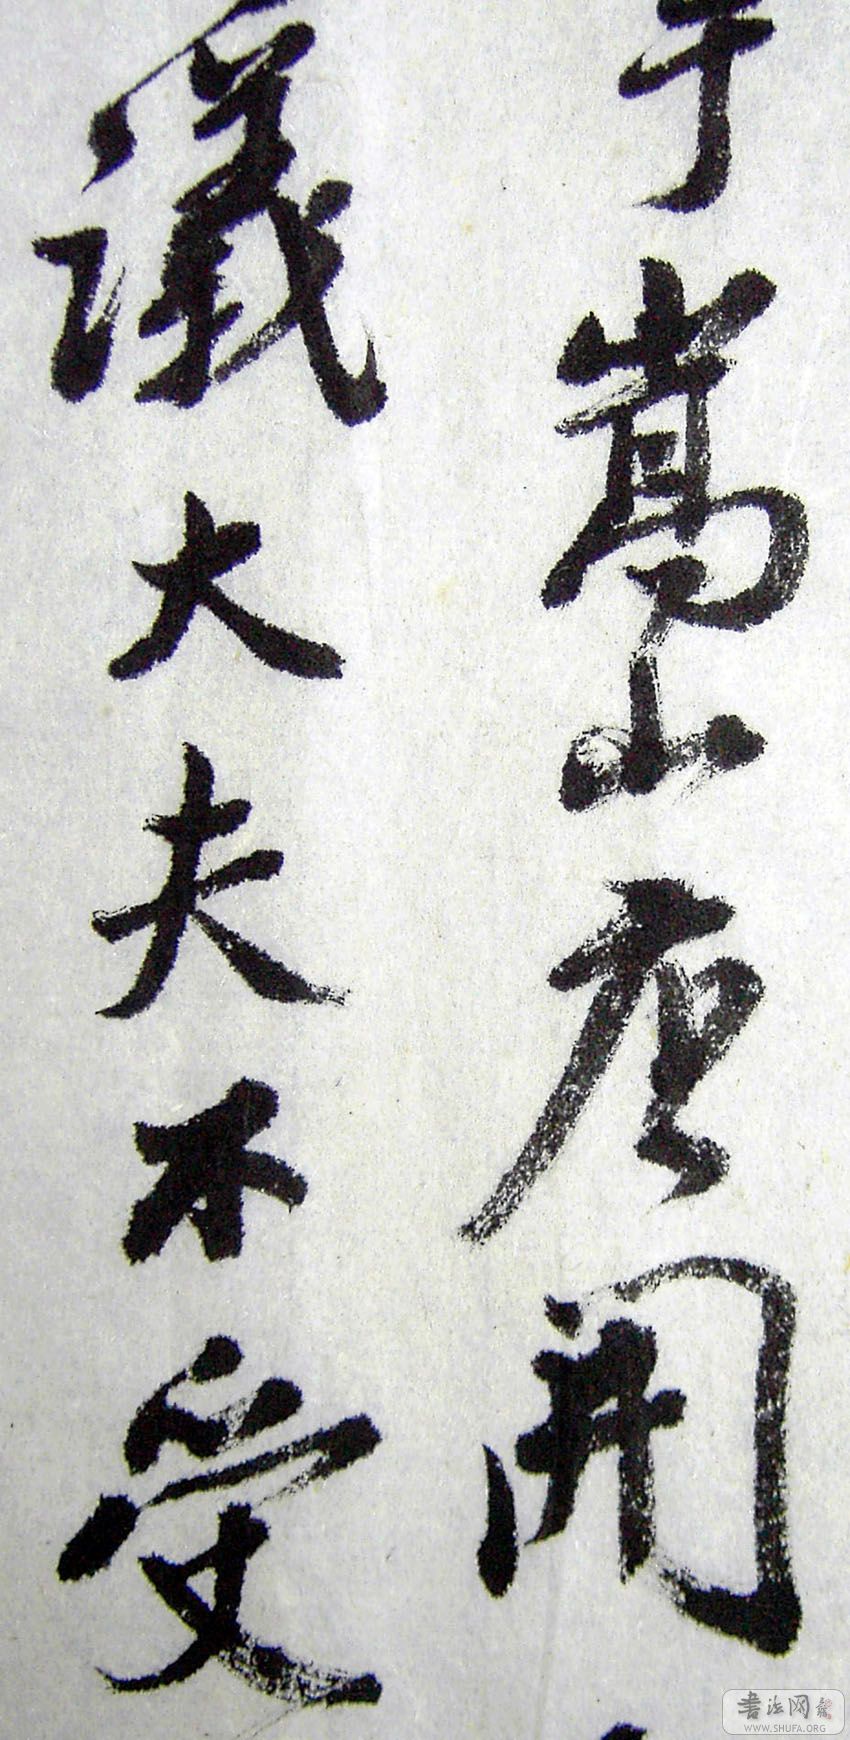 于嵩山唐開
議大夫不受
書法网
WWW.SHUFA.ORG